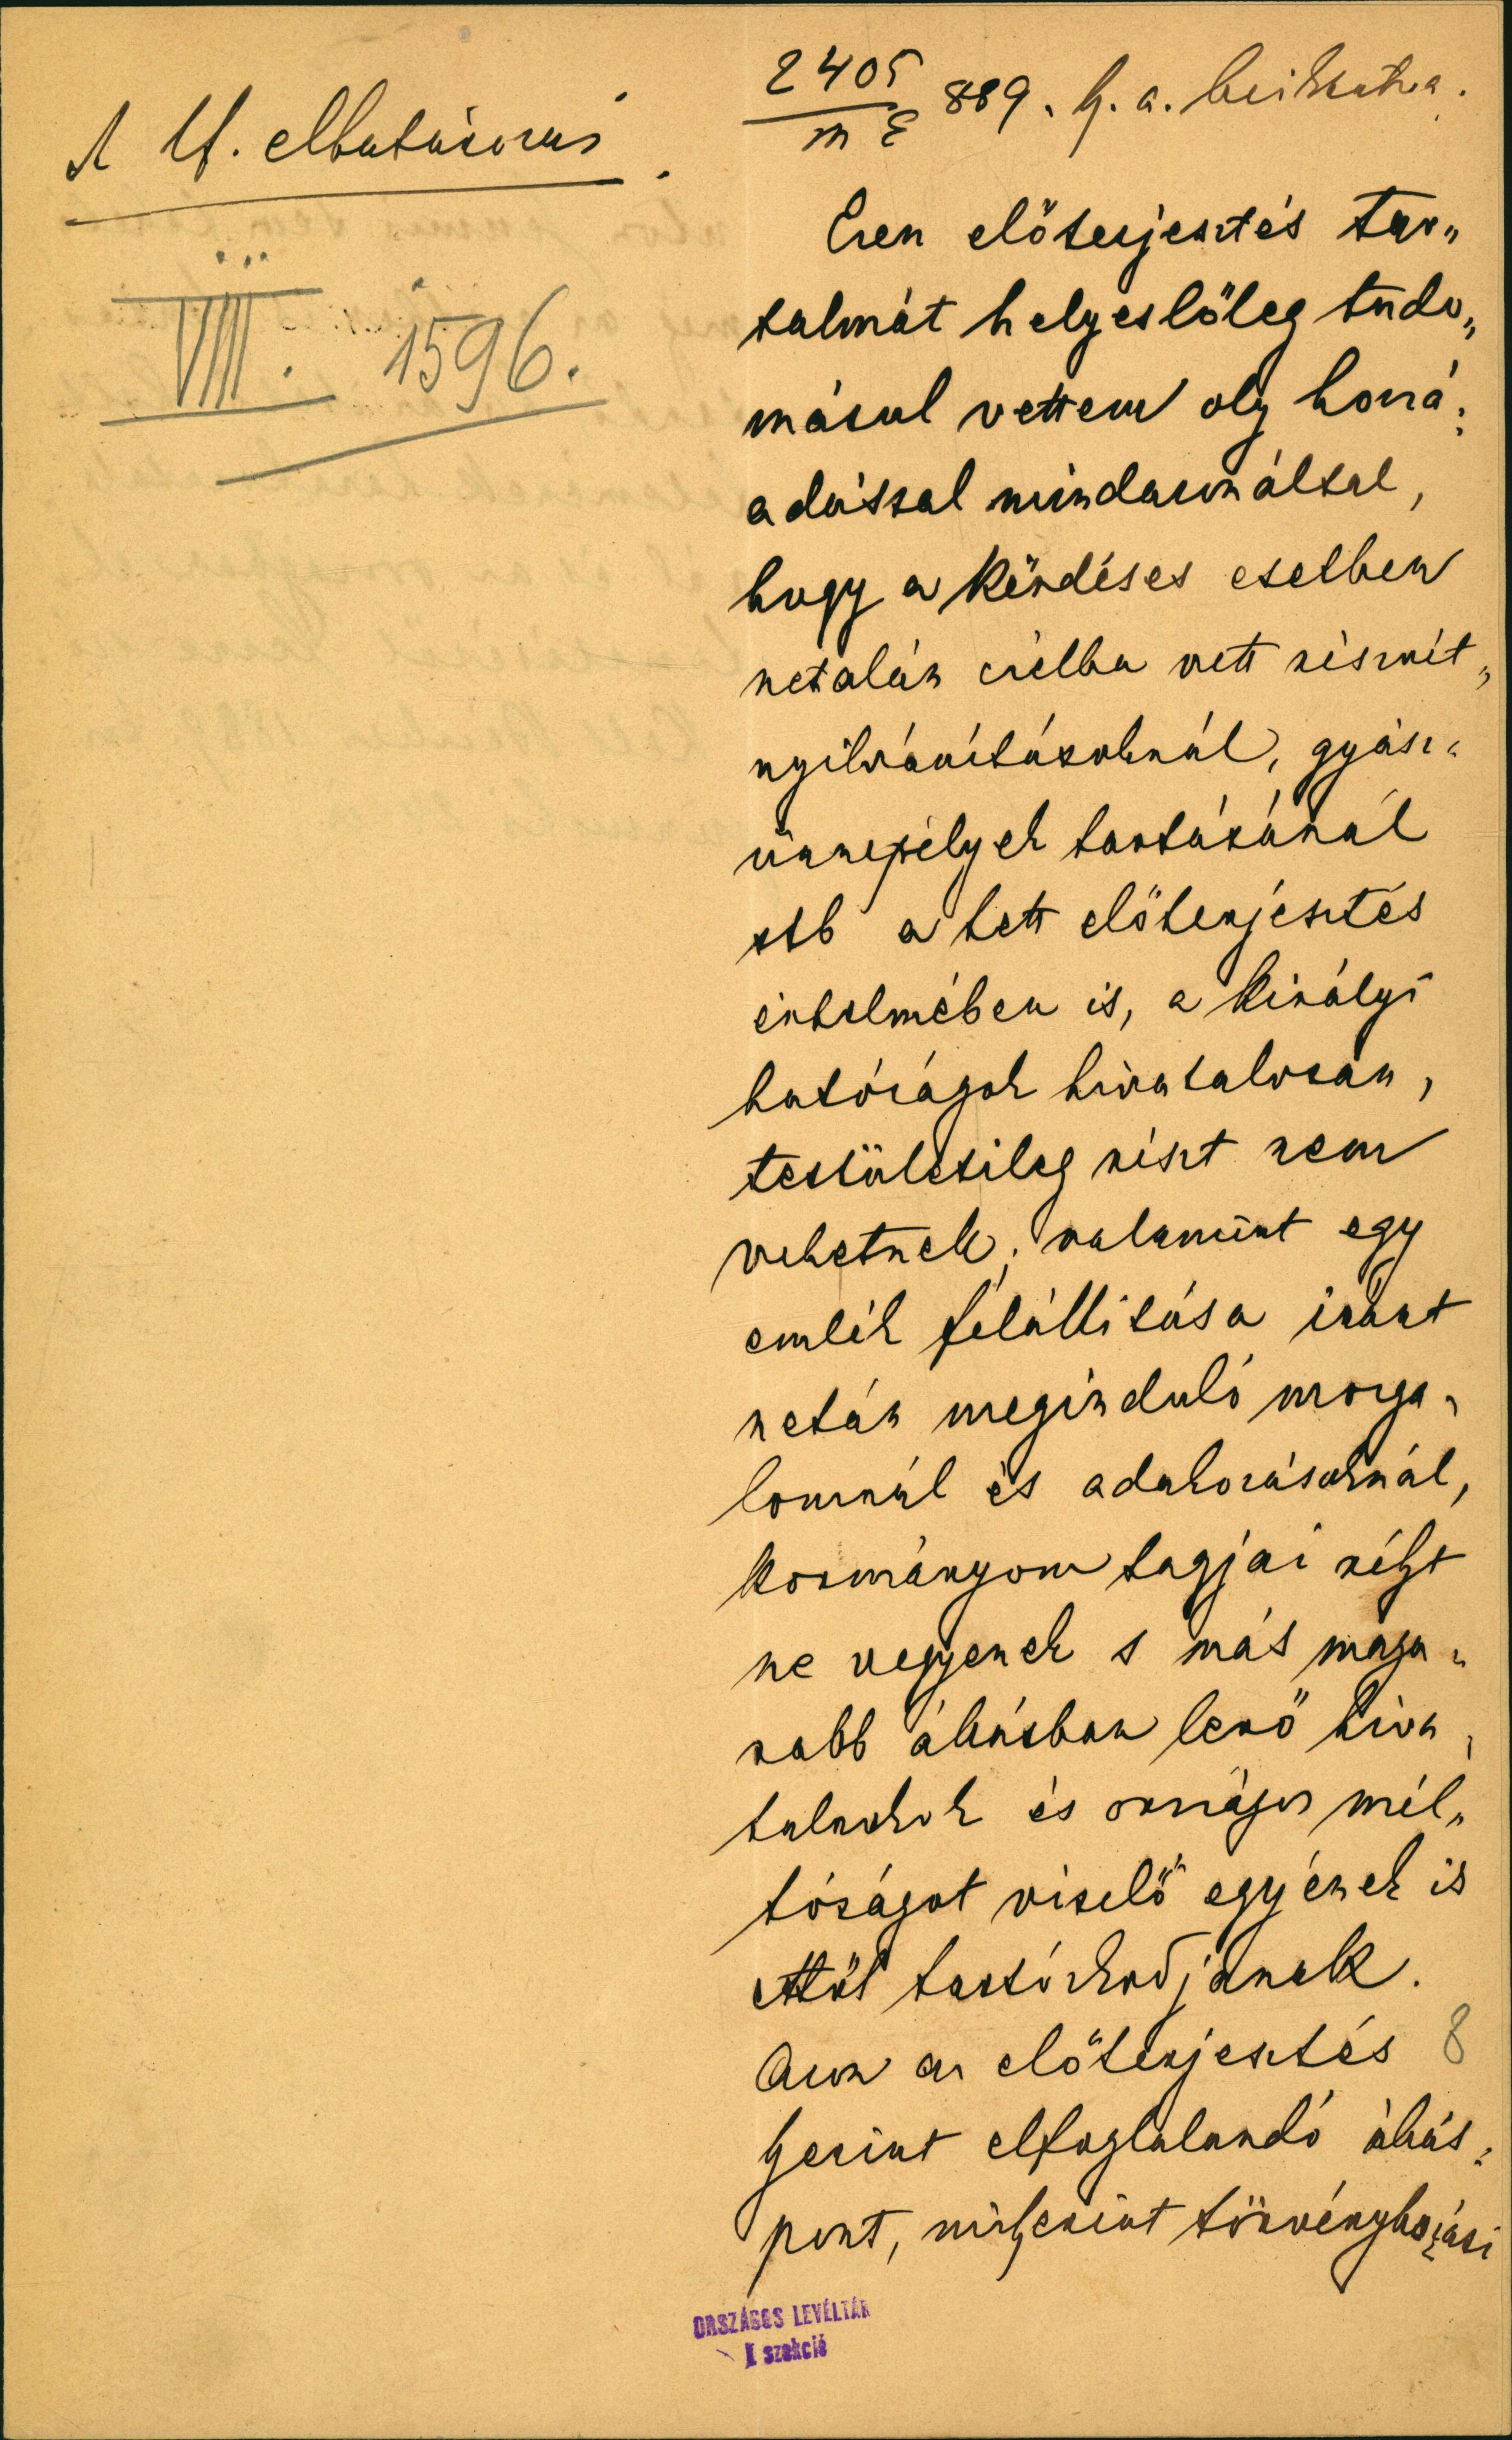 A Kf. elhatározás
VIII. 1596.
2405/ME 889. sz. a. beiktatva.
Ezen előterjesztés tar„
talmát helyeslőleg tudo„
másul vettem oly hozzá„
adással mindazonáltal,
hogy a kérdéses esetben
netalán czélba vett részvét„
nyilvánításoknál, gyász„
ünnepélyek tartásánál
stb a tett előterjesztés
értelmében is, a királyi
hatóságok hivatalosan,
testületileg részt nem
vehetnek; valamint egy
emlék felállítása iránt
netán meginduló mozga„
lomnál és adakozásoknál,
kormányom tagjai részt
ne vegyenek s más maga„
sabb állásban lévő hiva„
talnokok és országos mél„
tóságot viselő egyének is
ettől tartózkodjanak.
Azon az előterjesztés
8
szerint elfoglalandó állás„
pont, miszerint törvényhozási
ORSZÁGOS LEVÉLTÁR
I szekció